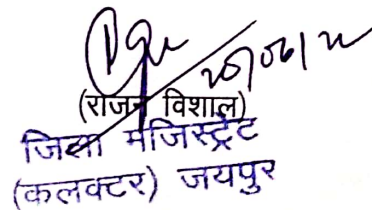 20/06/22
(राजन विशाल)
जिला मजिस्ट्रेट
(कलक्टर) जयपुर